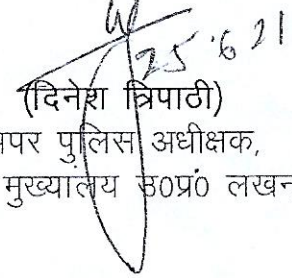 25.6.21
(दिनेश त्रिपाठी)
अपर पुलिस अधीक्षक,
मुख्यालय उ0प्र0 लखन